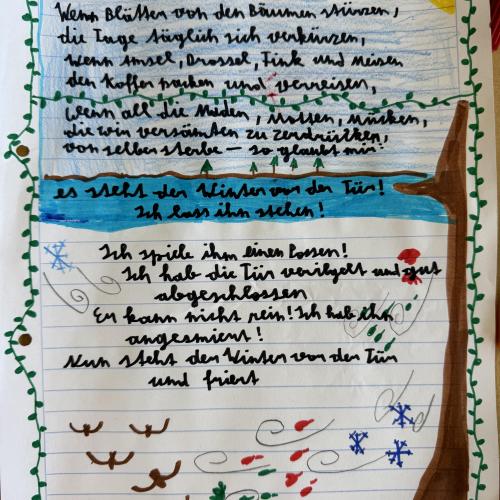 Wenn Blätter von den Bäumen stürzen,
die Tage täglich sich verkürzen,
Wenn Amsel, Drossel, Fink und Meisen
den Koffer packen und verreisen,
Wenn all die Maden, Motten, Mücken,
die wir versäumten zu zerdrücken,
von selber sterbe – so glaubt mir:
es steht der Winter vor der Tür!
Ich lass ihn stehen!
Ich spiele ihm einen Possen!
Ich hab die Tür verriegelt und gut
abgeschlossen
Er kann nicht rein! Ich hab ihn
angeschmiert!
Nun steht der Winter vor der Tür
und friert